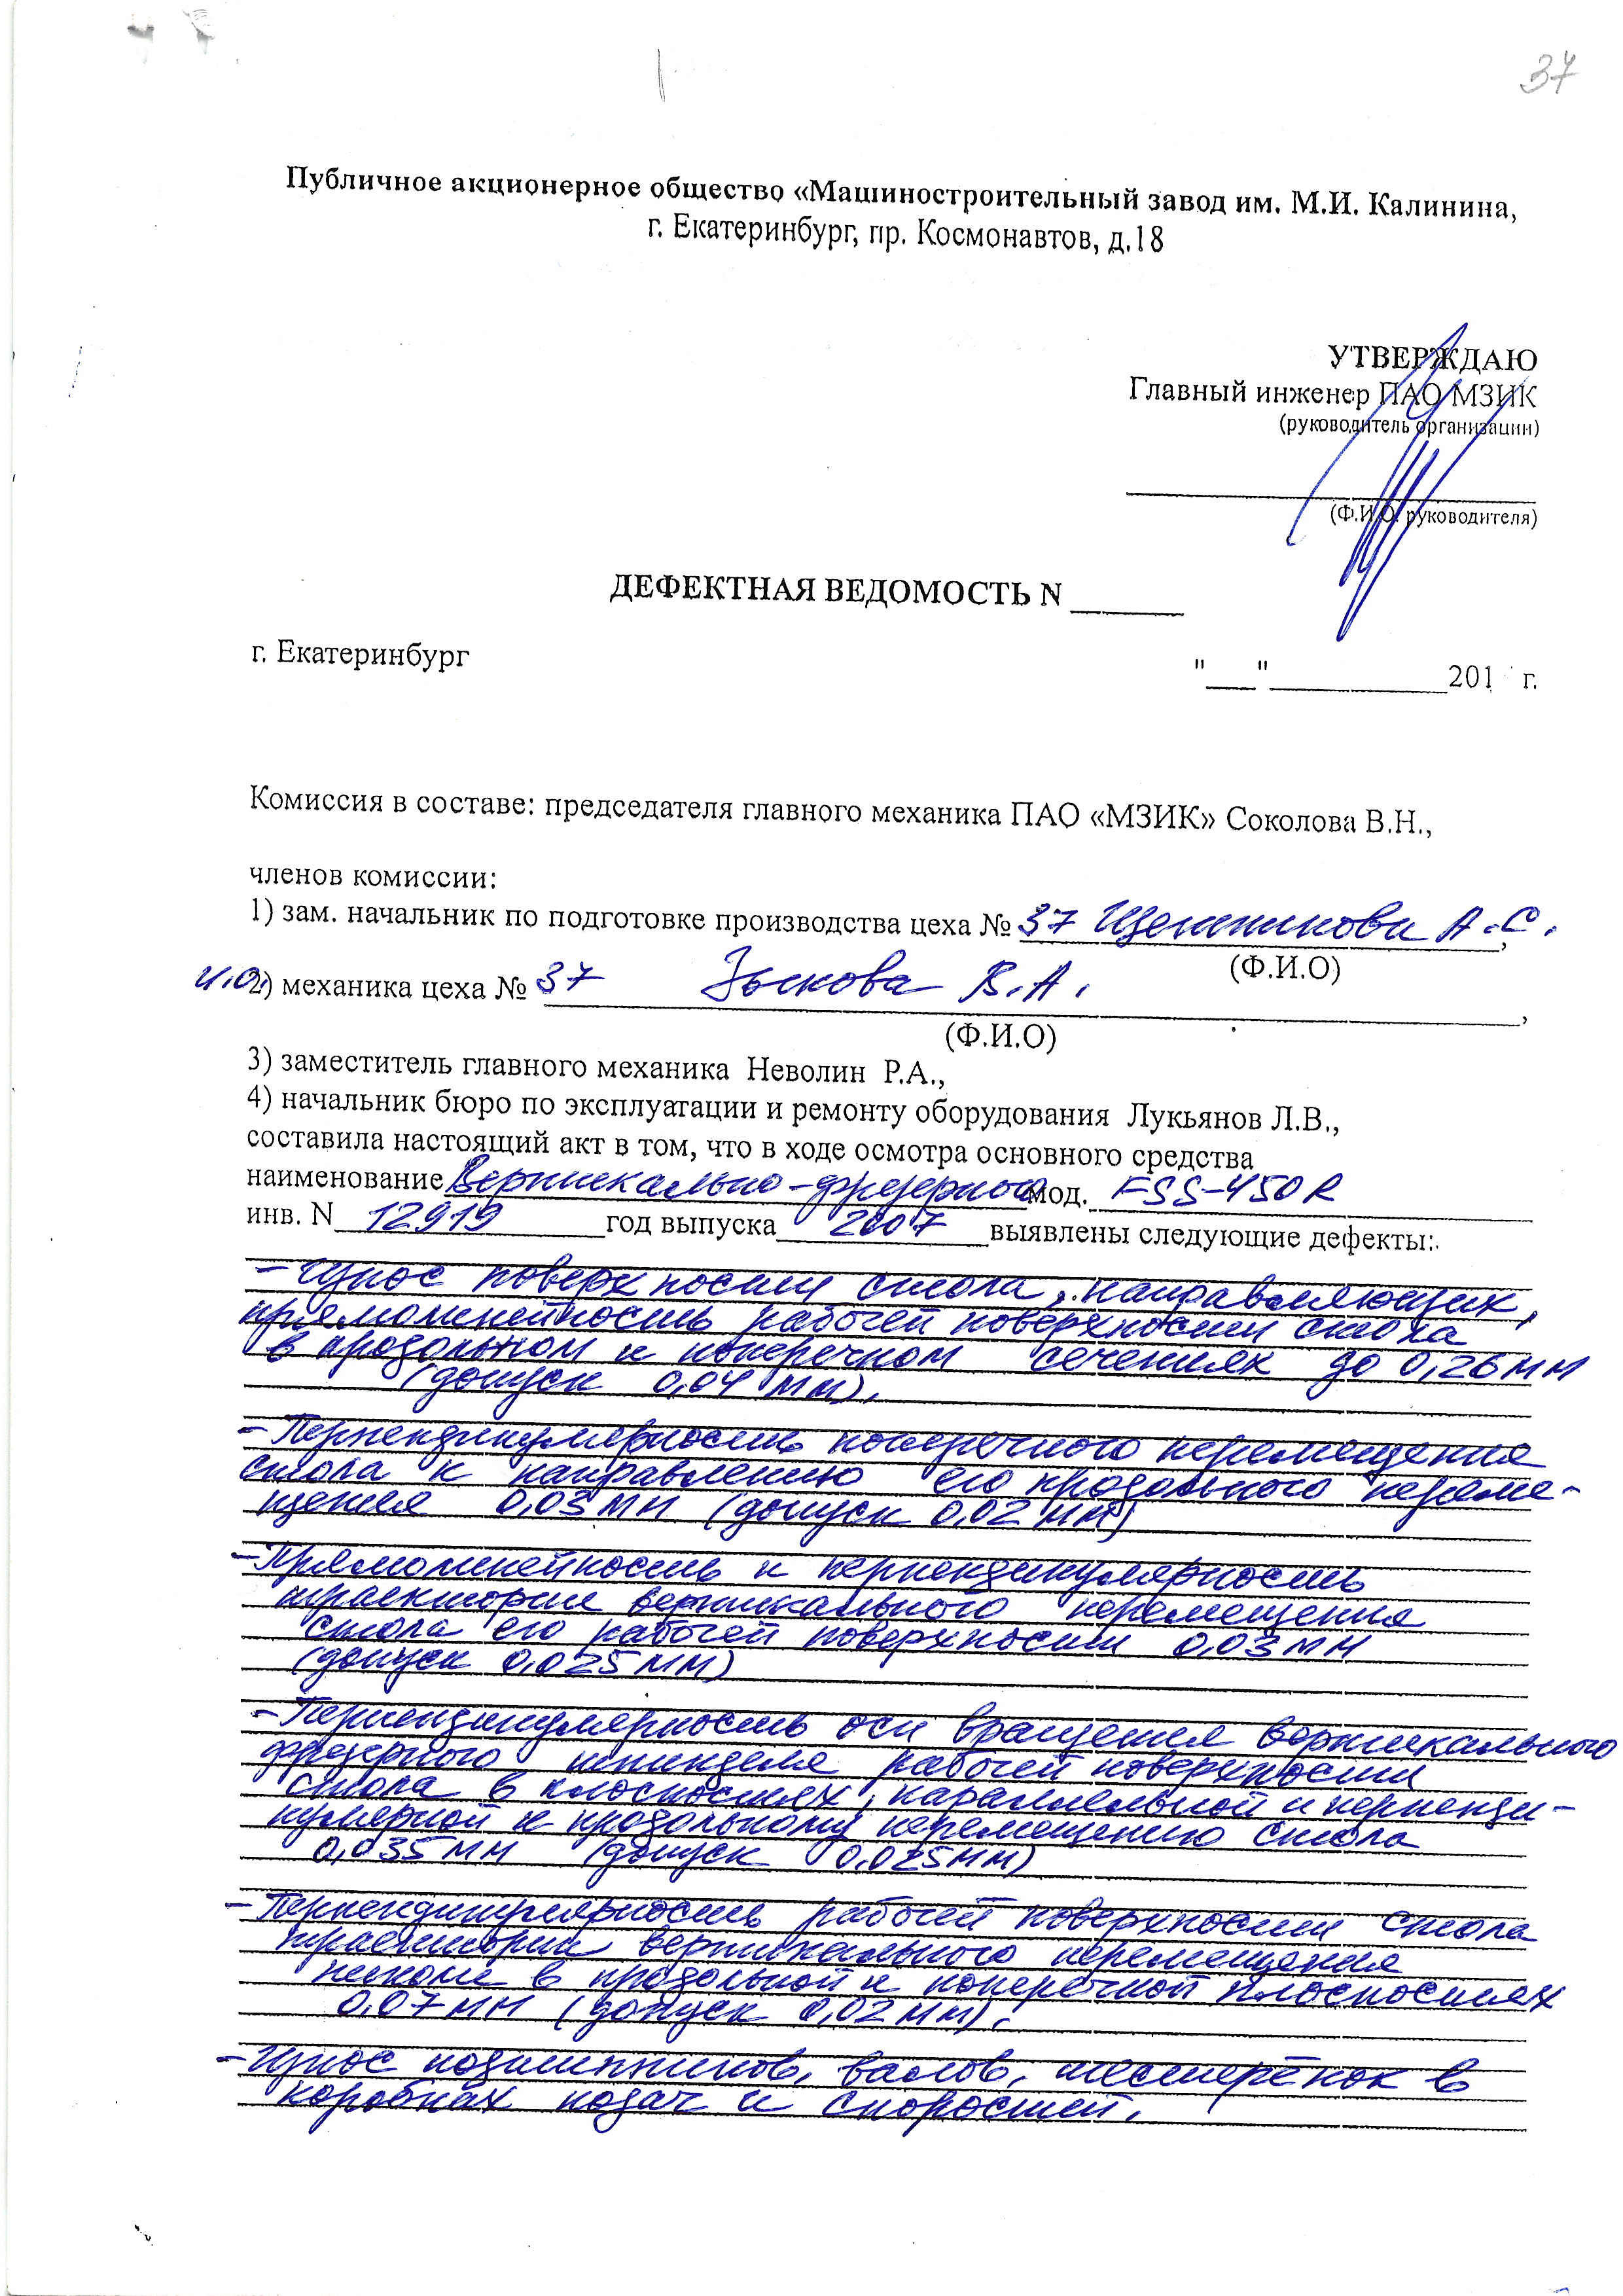 37
Публичное акционерное общество «Машиностроительный завод им. М.И. Калинина,
г. Екатеринбург, пр. Космонавтов, д.18
УТВЕРЖДАЮ
Главный инженер ПАО МЗИК
(руководитель организации)
(Ф.И.О. руководителя)
ДЕФЕКТНАЯ ВЕДОМОСТЬ N ______
г. Екатеринбург "___"___________201 г.
Комиссия в составе: председателя главного механика ПАО «МЗИК» Соколова В.Н.,
членов комиссии:
1) зам. начальник по подготовке производства цеха № 37 А.С.,
(Ф.И.О)
и.о. 2) механика цеха № 37 Зыкова В.А.,
(Ф.И.О)
3) заместитель главного механика Неволин Р.А.,
4) начальник бюро по эксплуатации и ремонту оборудования Лукьянов Л.В.,
составила настоящий акт в том, что в ходе осмотра основного средства
наименование Вертикально-фрезерного мод. FSS-450R
инв. N 12919 год выпуска 2007 выявлены следующие дефекты:
- Износ поверхности стола, направляющих,
прямолинейность рабочей поверхности стола
в продольном и поперечном сечениях до 0,26 мм
(допуск 0,04 мм).
- Перпендикулярность поперечного перемещения
стола к направлению его продольного переме-
щения 0,03 мм (допуск 0,02 мм)
- Прямолинейность и перпендикулярность
траектории вертикального перемещения
стола его рабочей поверхности 0,03 мм
(допуск 0,025 мм)
- Перпендикулярность оси вращения вертикального
фрезерного шпинделя рабочей поверхности
стола в плоскостях, параллельной и перпенди-
кулярной к продольному перемещению стола
0,035 мм (допуск 0,025 мм)
- Перпендикулярность рабочей поверхности стола
траектории вертикального перемещения
пиноли в продольной и поперечной плоскостях
0,07 мм (допуск 0,02 мм).
- Износ подшипников, валов, шестерёнок в
коробках подач и скоростей.